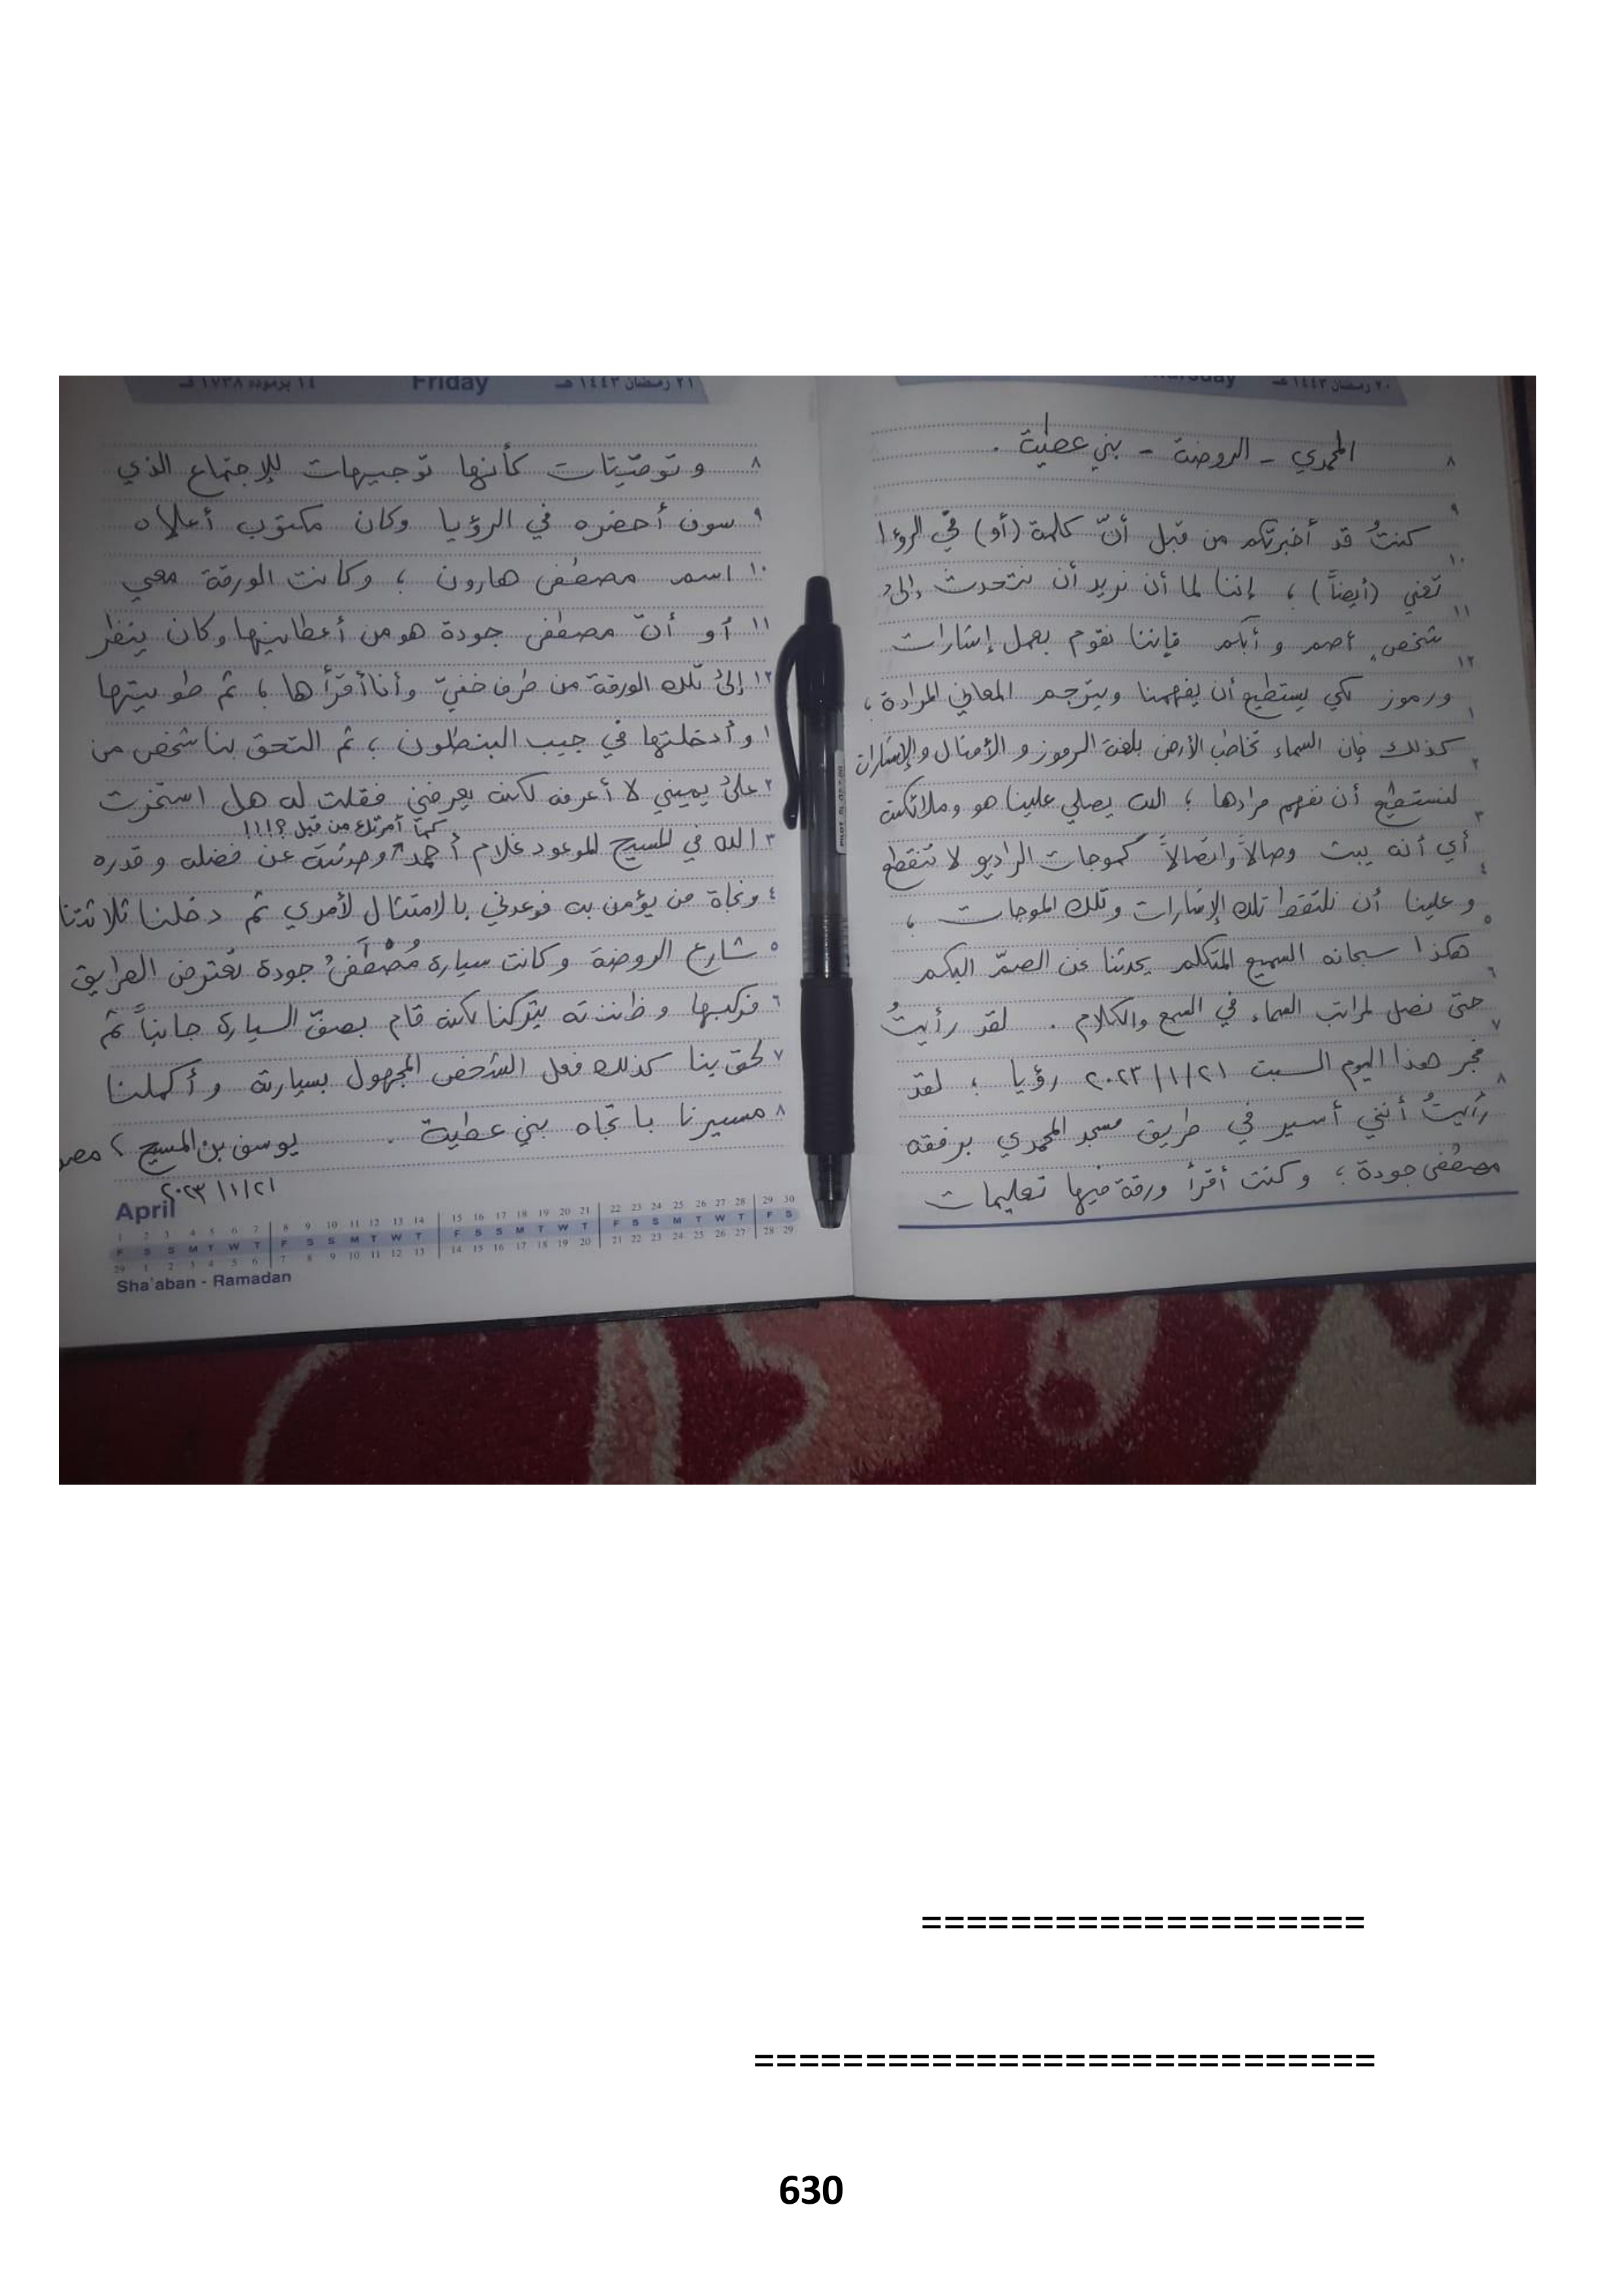 ٢٠ رمضان ١٤٤٣ هـ
المحمدي - الروضة - بني عطية .
كنتُ قد أخبرتكم من قبل أنّ كلمة (أو) في الرؤيا
تعني (أيضاً) ، إننا لما أن نريد أن نتحدث إلى
شخص أصم و أبكم فإننا نقوم بعمل إشارات
ورموز لكي يستطيع أن يفهمنا ويترجم المعاني المرادة ،
كذلك فإن السماء تخاطب الأرض بلغة الرموز و الأمثال و الإشارات
لنستطيع أن نفهم مرادها ؛ الله يصلي علينا هو وملائكته
أي أنه يبث وصالاً واتصالاً كموجات الراديو لا تنقطع
و علينا أن نلتقط تلك الإشارات وتلك الموجات ،
هكذا سبحانه السميع المتكلم يحدثنا نحن الصمّ البكم
حتى نصل لمراتب السماء في السمع والكلام . لقد رأيتُ
فجر هذا اليوم السبت ٢٠٢٣/١/٢١ رؤيا ؛ لقد
رأيتُ أنني أسير في طريق مسجد المحمدي برفقة
مصطفى جودة ؛ و كنت أقرأ ورقة فيها تعليمات
٢١ رمضان ١٤٤٣ هـ Friday ١٤ برمودة ١٧٣٨ ق
٨ و توصيّات كأنها توجيهات للإجتماع الذي
٩ سوف أحضره في الرؤيا وكان مكتوب أعلاه
١٠ اسم مصطفى هارون ؛ وكانت الورقة معي
١١ أو أنّ مصطفى جودة هو من أعطانيها وكان ينظر
١٢ إلى تلك الورقة من طرف خفيّ وأنا أقرأها ؛ ثم طويتها
١ و أدخلتها في جيب البنطلون ؛ ثم التحق بنا شخص من
٢ على يميني لا أعرفه لكنه يعرفني فقلت له هل استخرت
كما أمرتك من قبل ؟!!!
٣ الله في المسيح الموعود غلام أحمد وحدثته عن فضله و قدره
٤ ونجاة من يؤمن به فوعدني بالامتثال لأمري ثم دخلنا ثلاثتنا
٥ شارع الروضة و كانت سيارة مُصْطَفىُ جودة تعترض الطريق
٦ فركبها و ظننته يتركنا لكنه قام بصفّ السيارة جانباً ثم
٧ لحق بنا كذلك فعل الشخص المجهول بسيارته و أكملنا
٨ مسيرنا باتجاه بني عطية . يوسف بن المسيح ؛ مصر
٢٠٢٣/١/٢١
April
1 2 3 4 5 6 7 8 9 10 11 12 13 14 15 16 17 18 19 20 21 22 23 24 25 26 27 28 29 30
F S S M T W T F S S M T W T F S S M T W T F S S M T W T F S
29 1 2 3 4 5 6 7 8 9 10 11 12 13 14 15 16 17 18 19 20 21 22 23 24 25 26 27 28 29
Sha'aban - Ramadan
====================
============================
630